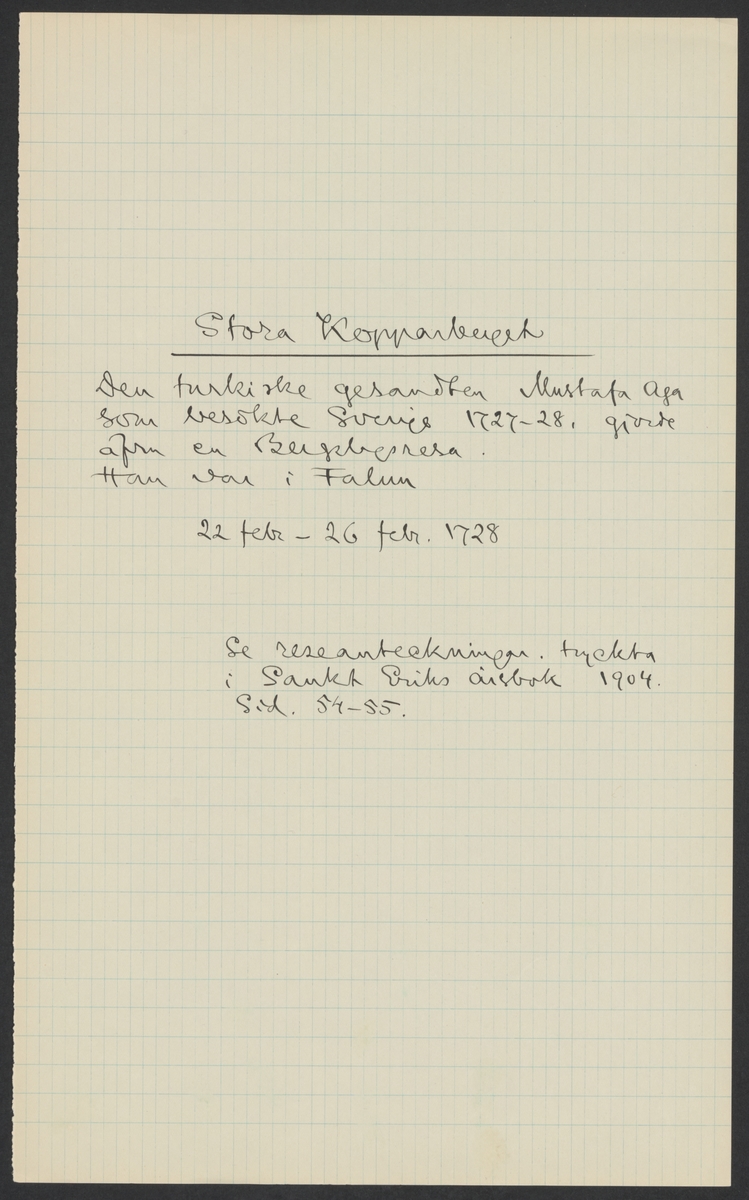 Stora Kopparberget
Den turkiske gesandten Mustafa Aga
som besökte Sverige 1727-28, gjorde
äfven en Bergslagsresa.
Han var i Falun
22 febr - 26 febr. 1728
Se reseanteckningar. tryckta
i Sankt Eriks årsbok 1904.
Sid. 54-55.